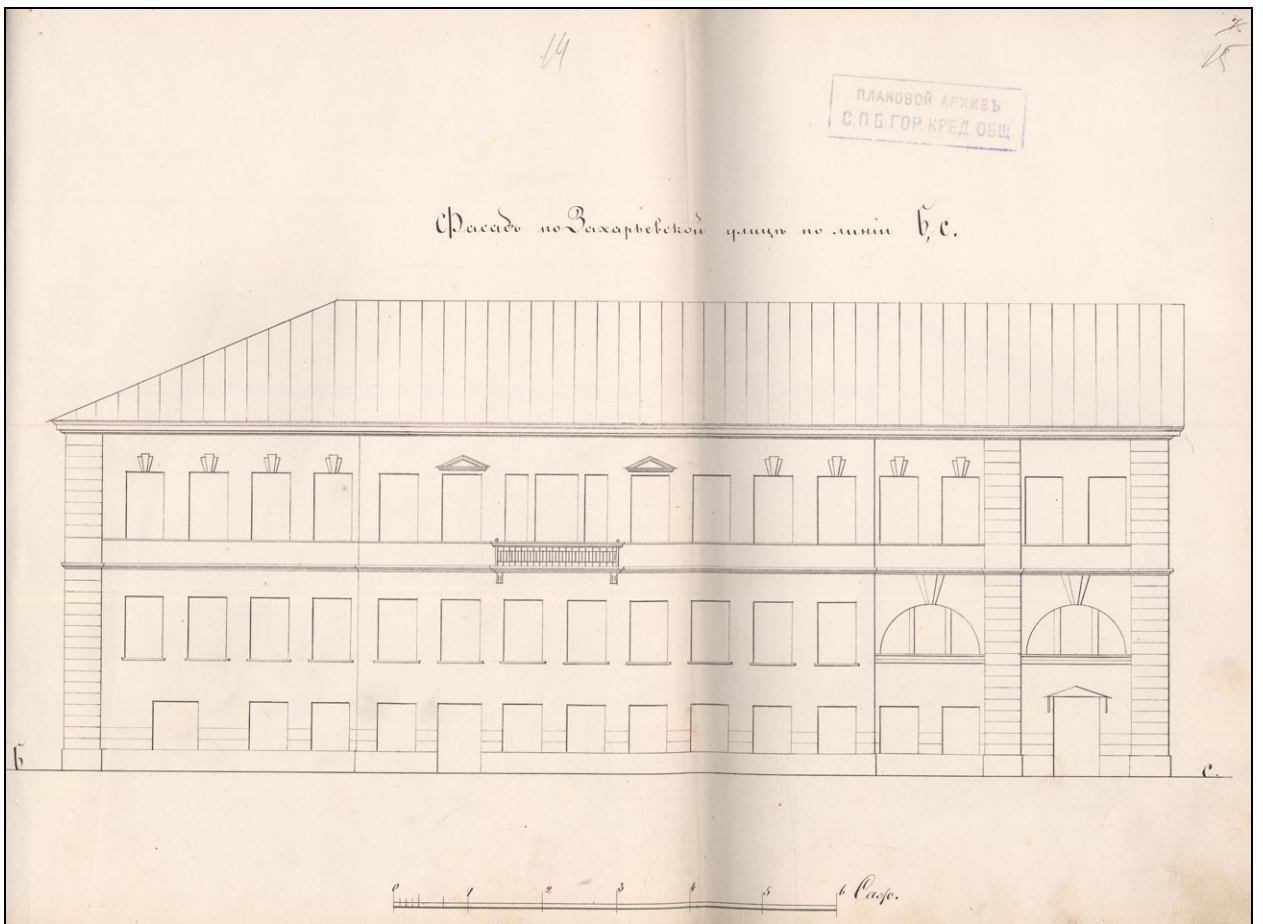 14
15
ПЛАНОВОЙ АРХИВЪ
С.П.Б. ГОР. КРЕД. ОБЩ.
Фасадъ по Захарьевской улицѣ по линіи б, с.
б
с.
0 1 2 3 4 5 6 Саж.